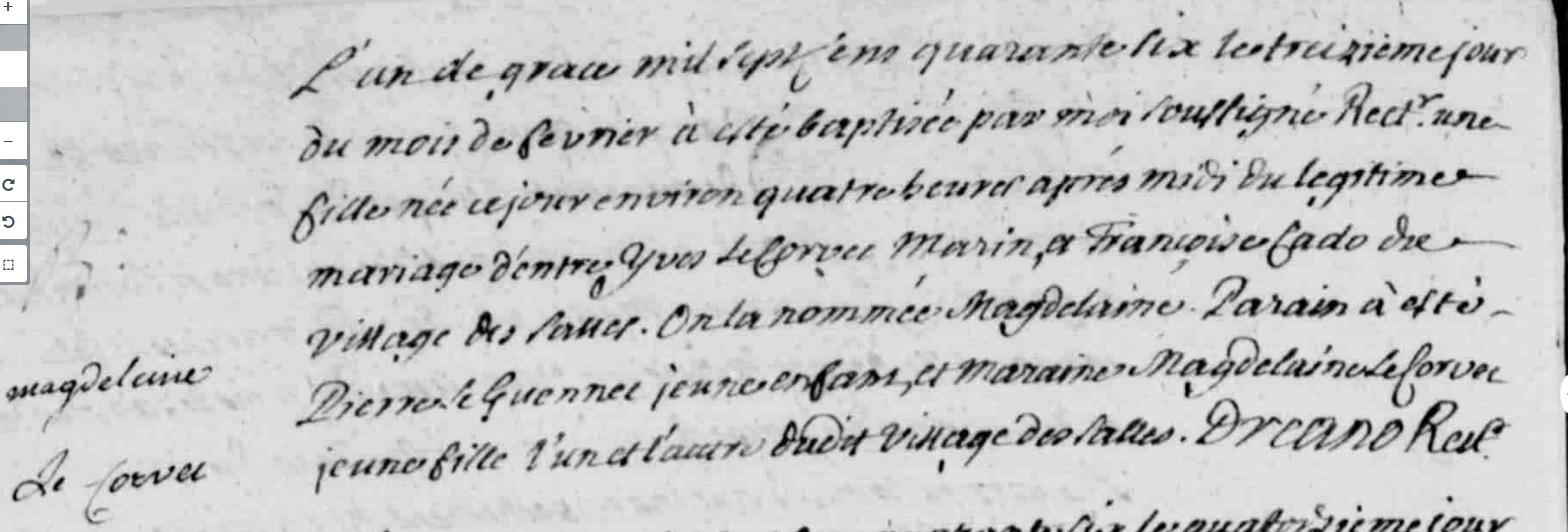 L'an de grace mil sept cens quarante six le treizième jour
du mois de fevrier à esté baptisée par moi soussigné Rectr. une
fille née ce jour environ quatre heures après midi du legitime
mariage d'entre Yves Le Corvec Marin, et Françoise Cado du
village des salles. On la nommée Magdelaine. Parain à esté
magdeleine
Pierre le Guennec jeune enfant, et maraine Magdelaine Le Corvec
jeune fille l'un et l'autre dudit village des salles. Dreano Rectr.
Le Corvec